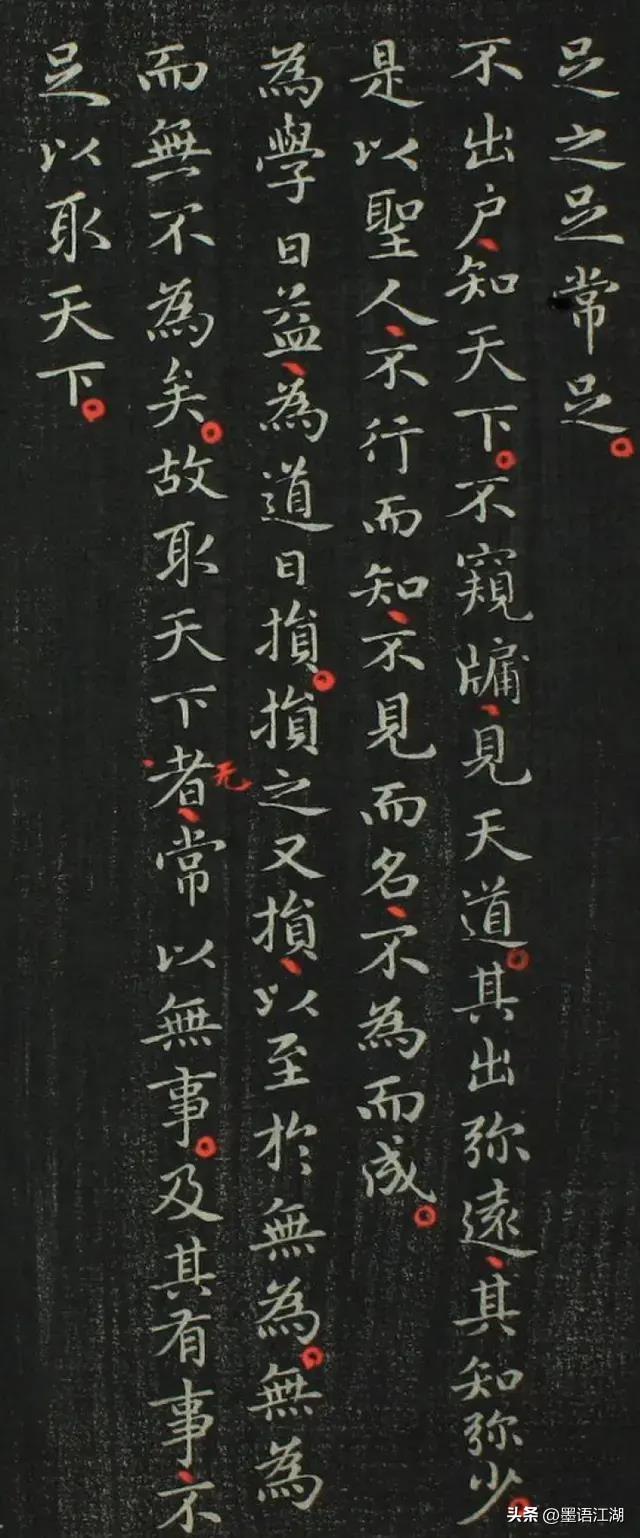 足之足常足。
不出户、知天下。不窺牖、見天道。其出弥遠、其知弥少。
是以聖人、不行而知、不見而名、不為而成。
為學日益、為道日損。損之又損、以至於無為。無為
而無不為矣。故取天下者、无常以無事。及其有事、不
足以取天下。
头条 @墨语江湖